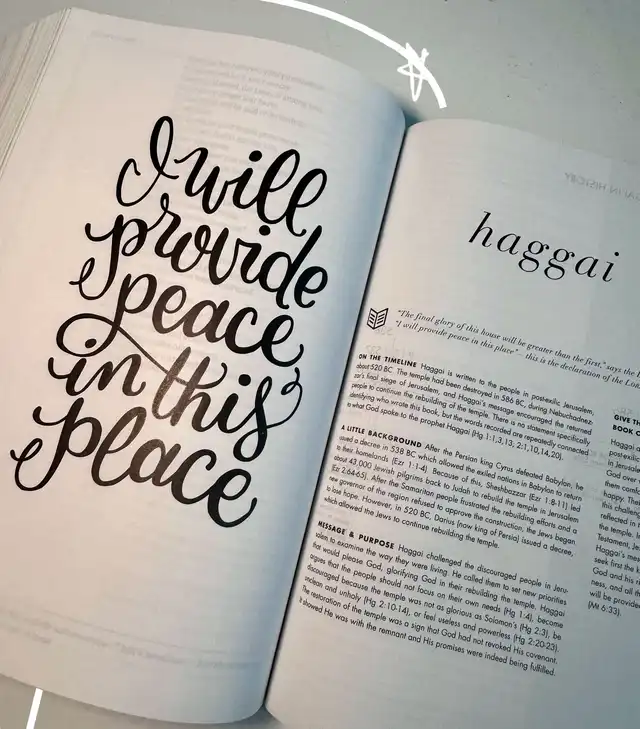 I will
provide
peace
in this
place
haggai
"The final glory of this house will be greater than the first," says the
"I will provide peace in this place" – this is the declaration of the
ON THE TIMELINE Haggai is written to the people in postexilic Jerusalem,
about 520 BC. The temple had been destroyed in 586 BC, during Nebuchadnez-
zar's final siege of Jerusalem, and Haggai's message encouraged the returned
people to continue the rebuilding of the temple. There is no statement specifically
identifying who wrote this book, but the words recorded are repeatedly connected
to what God spoke to the prophet Haggai (Hg 1:1,3,13, 2:1,10,14,20).
A LITTLE BACKGROUND After the Persian king Cyrus defeated Babylon, he
issued a decree in 538 BC which allowed the exiled nations in Babylon to return
to their homelands (Ezr 1:1-4). Because of this, Sheshbazzar (Ezr 1:8-11) led
about 43,000 Jewish pilgrims back to Judah to rebuild the temple in Jerusalem
(Ezr 2:64-65). After the Samaritan people frustrated the rebuilding efforts and a
new governor of the region refused to approve the construction, the Jews began
to lose hope. However, in 520 BC, Darius (now king of Persia) issued a decree,
which allowed the Jews to continue rebuilding the temple.
MESSAGE & PURPOSE Haggai challenged the discouraged people in Jeru-
salem to examine the way they were living. He called them to set new priorities
that would please God, glorifying God in their rebuilding the temple. Haggai
argues that the people should not focus on their own needs (Hg 1:4), become
discouraged because the temple was not as glorious as Solomon's (Hg 2:3), be
unclean and unholy (Hg 2:10-14), or feel useless and powerless (Hg 2:20-23).
The restoration of the temple was a sign that God had not revoked His covenant.
It showed He was with the remnant and His promises were indeed being fulfilled.
GIVE TH
BOOK O
Haggai a
postexilic
in Jerusal
God over
them co
happy. Th
this challe
reflected
the temple. In
Testament, Je
Haggai's mess
seek first the k
God and his
ness, and all th
will be provided
(Mt 6:33).